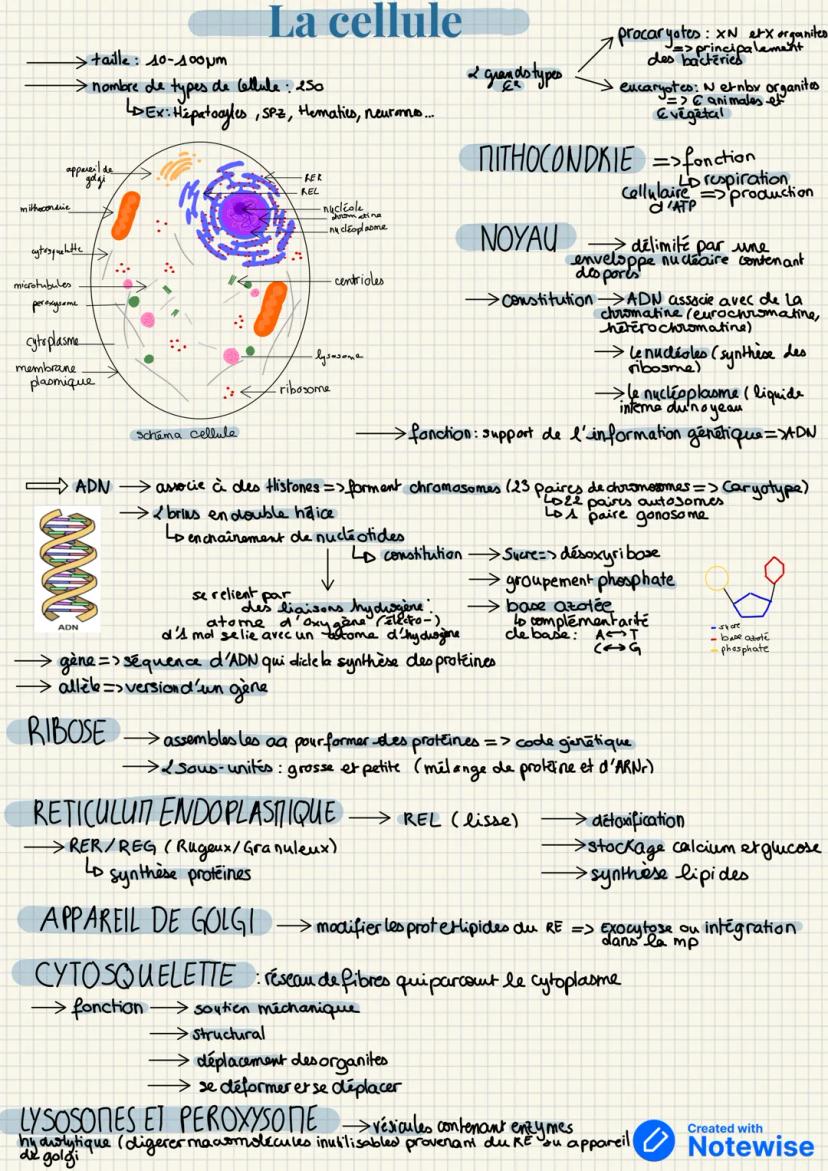 La cellule
→ taille : 10-100µm
→ nombre de types de cellule : 250
↳ Ex: Hépatocytes, SPZ, Hematies, neurones...
2 grands types
procaryotes : XN et X organites
=> principalement
des bactéries
eucaryotes : N et nbx organites
=> € animales et
€ végétal
appareil de
golgi
mithocondrie
cytosquelette
microtubules
peroxysome
cytoplasme
membrane
plasmique
RER
REL
nucléole
chromatine
nucléoplasme
centrioles
lysosome
ribosome
schéma cellule
MITHOCONDRIE => fonction
↳ respiration
cellulaire => production
d'ATP
NOYAU → délimité par une
enveloppe nucléaire contenant
des pores
→ constitution → ADN associe avec de la
chromatine (eurochromatine,
hétérochromatine)
→ le nucléoles (synthèse des
ribosme)
→ le nucléoplasme (liquide
interne du noyeau
→ fonction : support de l'information génétique => ADN
⇒ ADN → associe à des Histones => forment chromosomes (23 paires de chromosomes => caryotype)
↳ 22 paires autosomes
↳ 1 paire gonosome
→ 2 brins en double hélice
↳ enchaînement de nucléotides
↳ constitution → Sucre => désoxyribose
→ groupement phosphate
→ base azotée
↳ complémentarité
de base : A↔T
C↔G
se relient par
des liaisons hydrogène :
atome d'oxygène (électro-)
d'1 mol se lie avec un atome d'hydrogène
ADN
- sucre
- base azoté
- phosphate
→ gène => séquence d'ADN qui dicte la synthèse des protéines
→ allèle => version d'un gène
RIBOSE → assembles les aa pour former des protéines => code génétique
→ 2 sous-unités : grosse et petite (mélange de protéine et d'ARNr)
RETICULUM ENDOPLASMIQUE → REL (lisse) → détoxification
→ stockage calcium et glucose
→ synthèse lipides
→ RER/REG (Rugeux/Granuleux)
↳ synthèse protéines
APPAREIL DE GOLGI → modifier les prot et lipides du RE => exocytose ou intégration
dans la mp
CYTOSQUELETTE : réseau de fibres qui parcourt le cytoplasme
→ fonction → soutien méchanique
→ structural
→ déplacement des organites
→ se déformer et se déplacer
LYSOSOMES ET PEROXYSOME → vésicules contenant enzymes
hydrolytique (digerer macromolécules inutilisables provenant du RE ou appareil
de golgi
Created with
Notewise